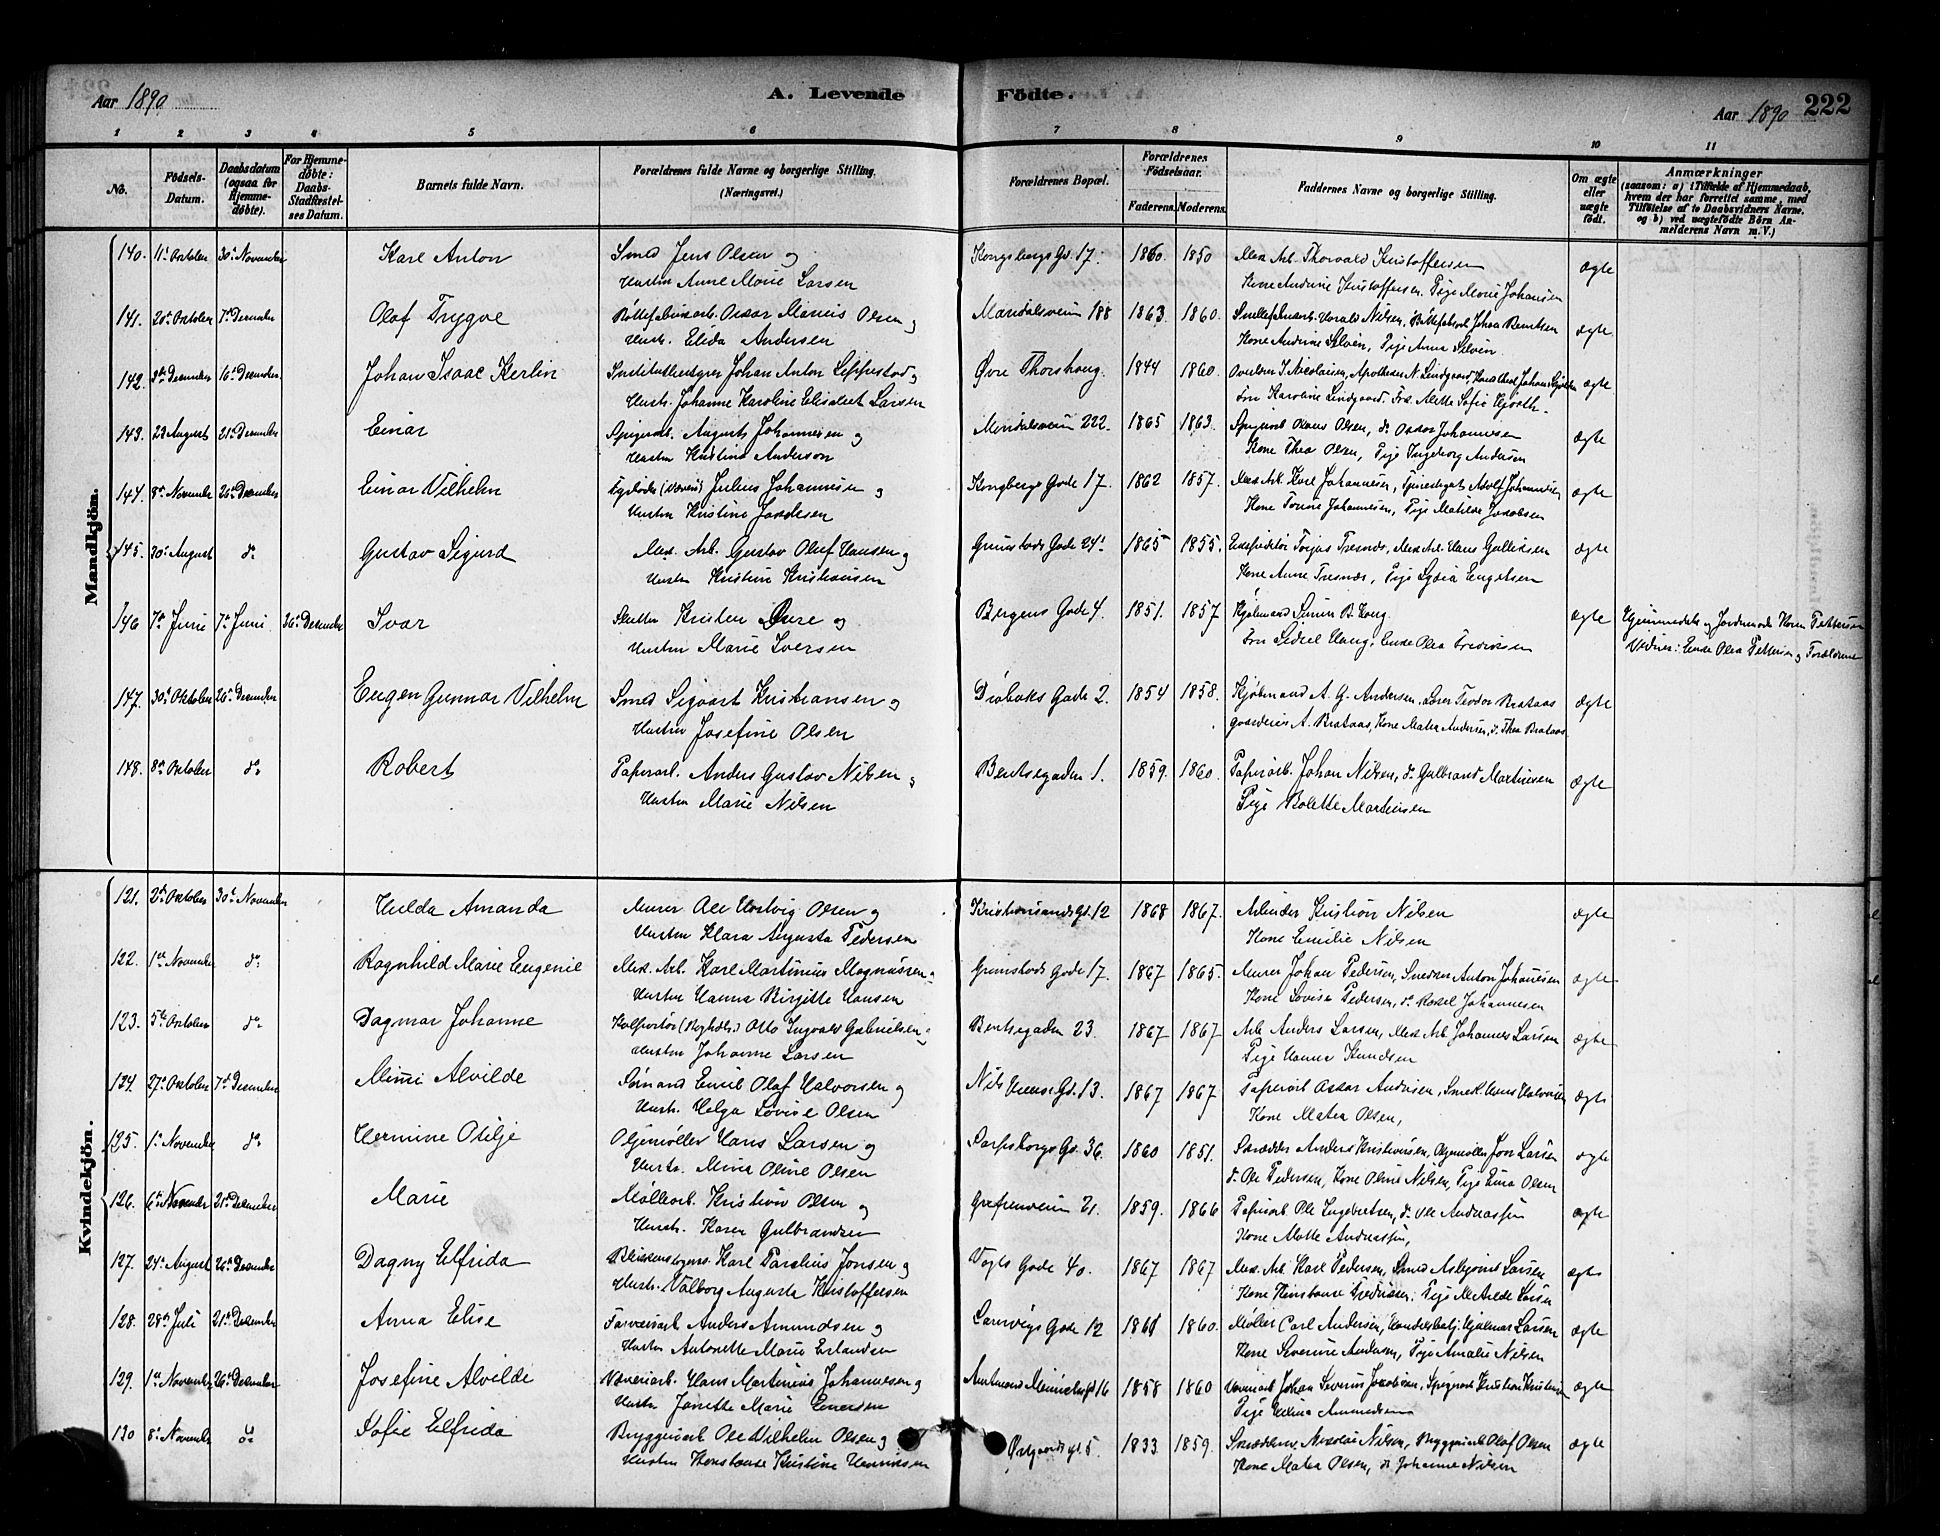 Aar 1890
A. Levende Födte.
Aar 1890 222
1 2 3 4 5 6 7 8 9 10 11
No.
Födsels-Datum.
Daabsdatum (ogsaa for Hjemme-döbte).
For Hjemme-döbte: Daabs-Stadfæstel-ses Datum.
Barnets fulde Navn.
Forældrenes fulde Navne og borgerlige Stilling. (Næringsvei.)
Forældrenes Bopæl.
Forældrenes Födselsaar.
Faderens. Moderens.
Faddernes Navne og borgerlige Stilling.
Om ægte eller uægte födt.
Anmærkninger
(saasom: a) i Tilfælde af Hjemmedaab,
hvem der har forrettet samme, med
Tilföielse af to Daabsvidners Navne,
og b) ved uægtefödte Börn An-
melderens Navn m. V.)
Mandkjön.
140. 11te Oktober 30te November Karl Anton Smed Jens Olsen og Kongsbergs Gd. 17. 1860. 1850 Mek. Arb. Thorvald Kristoffersen ægte
Hustru Anne Marie Larsen Kone Andrine Kristoffersen. Pige Marie Johansen
141. 20de Oktober 7de Desember Olaf Trygve Oskar Marius Olsen og Maridalsveien 188 1863 1860. Harald Nilsen, Johan Berntsen ægte
Hustr. Elida Andersen Kone Andrine Selvén, Pige Anna Selvén
142. Desember 16de Desember Johan Isaac Kerlin Institutbestyrer Johan Anton Lippestad og Øvre Thorshaug. 1844 1860. Nicolaisen, Apotheker N. Lindgaard, ægte
Hustr. Johanne Karoline Elisabet Larsen Fru Karoline Lindgaard. Frk. Mette Sofie Kjorth
143. 23 August 21de Desember Einar Spigerarb. August Johannesen og Maridalsveien 222. 1865 1863. Spigerarb. Klaus Olsen, do Oskar Johannesen ægte
Hustru Kristine Anderson Kone Thea Olsen, Pige Ingeborg Andersen
144. 8de November 26de Desember Einar Vilhelm Julius Johannesen og Kongbergs Gade 17. 1862 1857. Mek. Arb. Karl Johannesen, Adolf Johannesen ægte
Hustru Kristine Jakobsen Kone Johannesen, Pige Matilde Jakobsen
145. 30te August do Gustav Sigurd Mek. Arb. Gustav Oluf Hansen og Grimstads Gade 24. 1865 1855. Torjus Tresnæs, Mek. Arb. Hans Gulliksen ægte
Hustru Kristine Kristiansen Kone Anne Tresnæs, Pige Lydia Engelsen
146 7de Juni 7de Juni 26de Desember Ivar Kristen Øvre og Bergens Gade 4. 1851. 1857 Kjøbmand Simen B. Haug. ægte Hjemmedøbt og Jordemoder Karen Pettersen
Hustru Marie Iversen Fru Sedsel Haug, Enke Olea Fredriksen Vidner: Enke Olea Pettersen og Forældrene
147. 30te Oktober 26de Desember Eugen Gunnar Vilhelm Smed Sigvart Kristiansen og Drøbaks Gade 2. 1854 1858. Kjøbmand A. G. Andersen, Lærer Teodor Brataas ægte
Hustru Josefine Olsen A. Brataas, Kone Matea Andersen, do Thea Brataas
148. 8de Oktober do Robert Papirarb. Anders Gustav Nilsen og Bentsegaden 1. 1859. 1860. Papirarb. Johan Nilsen, do Gulbrand Martinsen ægte
Hustru Marie Nilsen Pige Bolette Martinsen
Kvindekjön.
121. 2de Oktober 30te November Hulda Amanda Murer Ole Hartvig Olsen og Kristiansands Gd. 12 1868 1867. Arbeider Kristian Nilsen ægte
Hustru Klara Augusta Pedersen Kone Emilie Nilsen
122. 1ste November do Ragnhild Marie Eugenie Mek. Arb. Karl Martinius Magnussen og Grimstads Gade 17. 1867 1865. Murer Johan Pedersen, Snedker Anton Johannesen ægte
Hustru Hanna Birgitte Hansen Kone Lovise Pedersen, do Johannesen
123. 5te Oktober do Dagmar Johanne Kolportør Otto Ingvald Gabrielsen og Bentsegaden 23. 1867 1867 Arb. Anders Larsen, Mek. Arb. Johannes Larsen ægte
Hustru Johanne Larsen Pige Hanna Knudsen
124. 27de Oktober 7de Desember Mimi Alvilde Sømand Emil Olaf Halvorsen og Nils Huus Gd. 13. 1867 1867 Papirarb. Oskar Andersen, Smed Hans Halvorsen ægte
Hustr. Helga Lovise Olsen Kone Matea Olsen,
125. 1ste November do Hermine Otilje Oljemøller Hans Larsen og Sarpsborgs Gd. 36. 1860 1851. Skrædder Anders Kristensen, Oljemøller Larsen ægte
Hustr. Mina Oline Olsen do Ole Pedersen, Kone Oline Nilsen, Pige Lina Olsen
126. 6te November 21de Desember Marie Møllearb. Kristian Olsen og Grefsenveien 21. 1859. 1866 Papirarb. Ole Ingebretsen, do Ole Andreassen ægte
Hustr. Karen Gulbrandsen Kone Andreassen,
127. 24de August 26de Desember Dagny Elfrida Karl Parelius Jonsen og Vogts Gade 40. 1867 1867 Mek. Arb. Karl Pedersen, Smed Asbjørn Larsen ægte
Hustr. Valborg Augusta Kristoffersen Kone Konstanse Fredriksen. Pige Matilde Larsen
128. 28de Juli 21de Desember Anna Elise Farveriarb. Anders Amundsen og Larviks Gade 12 1861 1860. Møller Carl Andersen, Handelsbetj. Hjalmar Larsen ægte
Hustru Antonette Marie Erlandsen Kone Severine Andersen, Pige Amalie Nilsen
129. 1ste November 26de Desember Josefine Alvilde Væveriarb. Hans Martinius Johannesen og 16 1858 1860 Væveriarb. Johan Severin Jakobsen, Spigerarb. Kristian Kristiansen ægte
Hustru Janette Marie Evensen Pige Helina Amundsen
130 8de November do Sofie Elfrida Bryggeriarb. Ole Vilhelm Olsen og Østgaardsgd. 5. 1833. 1859. Nikolai Nilsen, Bryggeriarb. Olaf Olsen ægte
Hustru Konstanse Kristine Henriksen Kone Matea Olsen, do Johanne Nilsen